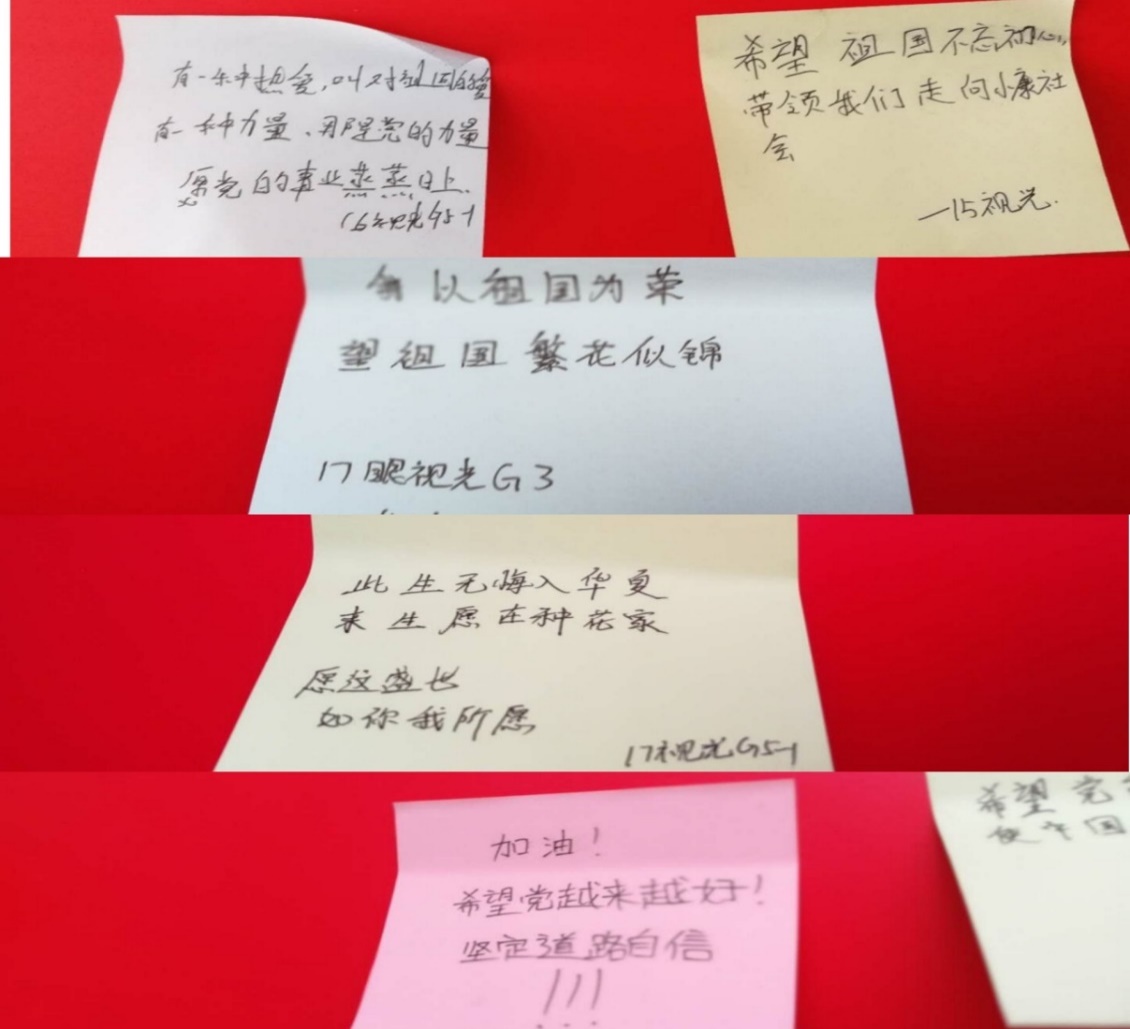 有一种热爱,叫对祖国的爱
有一种力量、那是党的力量
愿党的事业蒸蒸日上.
16视光G5-1
希望 祖国不忘初心,
带领我们走向小康社
会
—15视光.
以祖国为荣
望祖国繁花似锦
17眼视光G3
此生无悔入华夏
来生愿在种花家
愿这盛世
如你我所愿
17视光G5-1
加油!
希望党越来越好!
坚定道路自信
!!!
希望党
使中国